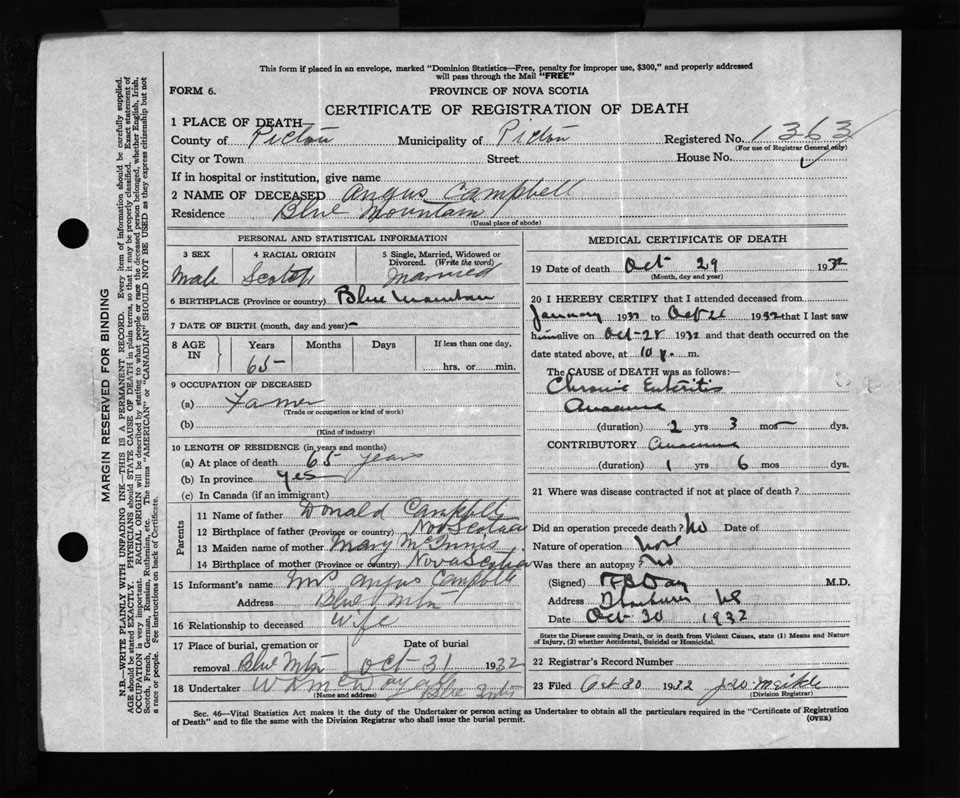 This form if placed in an envelope, marked "Dominion Statistics—Free, penalty for improper use, $300," and properly addressed
will pass through the Mail "FREE"
FORM 6.
PROVINCE OF NOVA SCOTIA
CERTIFICATE OF REGISTRATION OF DEATH
1 PLACE OF DEATH—
County of Pictou Municipality of Pictou Registered No. 1363
(For use of Registrar General only)
City or Town Street House No.
If in hospital or institution, give name
2 NAME OF DECEASED Angus Campbell
Residence Blue Mountain
(Usual place of abode)
PERSONAL AND STATISTICAL INFORMATION
3 SEX 4 RACIAL ORIGIN 5 Single, Married, Widowed or Divorced. (Write the word)
Male Scotch Married
6 BIRTHPLACE (Province or country) Blue Mountain
7 DATE OF BIRTH (month, day and year) —
8 AGE IN Years Months Days If less than one day,
65 hrs. or min.
9 OCCUPATION OF DECEASED
(a) Famer
(Trade or occupation or kind of work)
(b)
(Kind of industry)
10 LENGTH OF RESIDENCE (in years and months)
(a) At place of death 65 years
(b) In province yes
(c) In Canada (if an immigrant)
Parents
11 Name of father Donald Campbell
12 Birthplace of father (Province or country) Nov Scotia
13 Maiden name of mother Mary McInnis
14 Birthplace of mother (Province or country) Nova Scotia
15 Informant's name Mrs Angus Campbell
Address Blue Mtn
16 Relationship to deceased Wife
17 Place of burial, cremation or removal Blue Mtn Date of burial Oct 31 1932
18 Undertaker
(Name and address)
MEDICAL CERTIFICATE OF DEATH
19 Date of death Oct 29 1932
(Month, day and year)
20 I HEREBY CERTIFY that I attended deceased from
January 1932 to Oct 1932 that I last saw
him alive on Oct-28 1932 and that death occurred on the
date stated above, at 10 p. m.
The CAUSE OF DEATH was as follows:—
Chronic Enteritis
Anaemia
(duration) 2 yrs 3 mos dys.
CONTRIBUTORY Anaemia
(duration) 1 yrs 6 mos dys.
21 Where was disease contracted if not at place of death?
Did an operation precede death? No Date of
Nature of operation None
Was there an autopsy? No
(Signed) F B Day M.D.
Address Thorburn NS
Date Oct-30 1932
State the Disease causing Death, or in death from Violent Causes, state (1) Means and Nature
of Injury, (2) whether Accidental, Suicidal or Homicidal.
22 Registrar's Record Number
23 Filed Oct 30 1932 Jas Meikle
(Division Registrar)
Sec. 46—Vital Statistics Act makes it the duty of the Undertaker or person acting as Undertaker to obtain all the particulars required in the "Certificate of Registration
of Death" and to file the same with the Division Registrar who shall issue the burial permit.
(OVER)
MARGIN RESERVED FOR BINDING
N.B.—WRITE PLAINLY WITH UNFADING INK—THIS IS A PERMANENT RECORD. Every item of information should be carefully supplied.
AGE should be stated EXACTLY. PHYSICIANS should STATE CAUSE OF DEATH in plain terms, so that it may be properly classified. Exact statement of
OCCUPATION is very important. RACIAL ORIGIN will be described by stating to what people or race the deceased person belonged, whether English, Irish,
Scotch, French, German, Russian, Ruthenian, etc. The terms "AMERICAN" or "CANADIAN" SHOULD NOT BE USED as they express citizenship but not
a race or people. See instructions on back of Certificate.